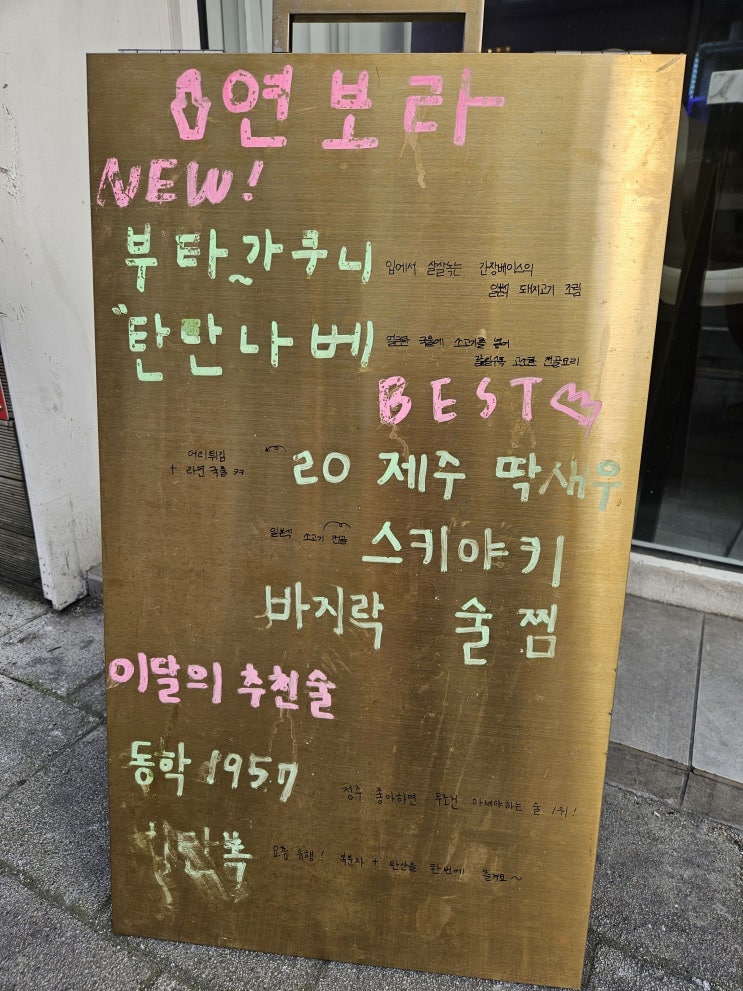 연보라
NEW!
부타가쿠니
입에서 살살녹는 간장베이스의
일본식 돼지고기 조림
탄탄나베
국물에 소고기를 넣어
고소한 전골요리
BEST
머리튀김
+ 라면 국물 kk
20 제주 딱새우
일본식 소고기 전골
스키야키
바지락 술찜
이달의 추천술
동학 1957
청주 좋아하면 무조건 마셔야하는 술 1위!
탄복
요즘 유행! 복분자 + 탄산을 한번에 즐겨요~